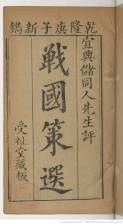 乾隆庚子新鐫
宜興儲同人先生評
戰國策選
受祉堂藏板